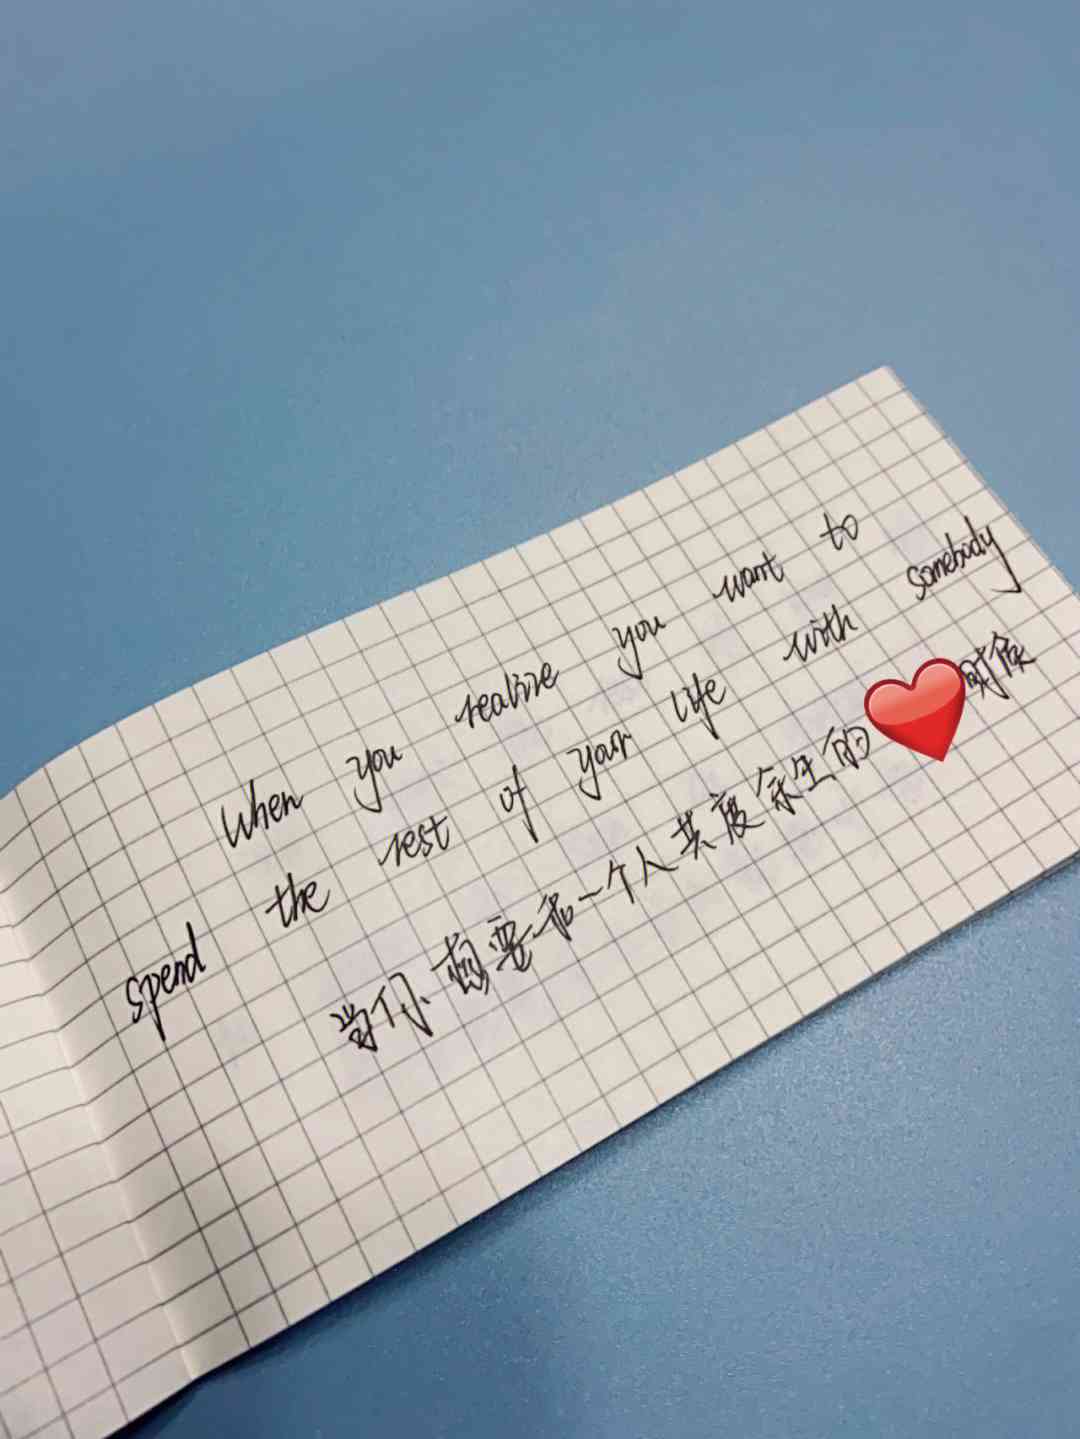 When you realize you want to
spend the rest of your life with somebody
当你想要和一个人共度余生的时候